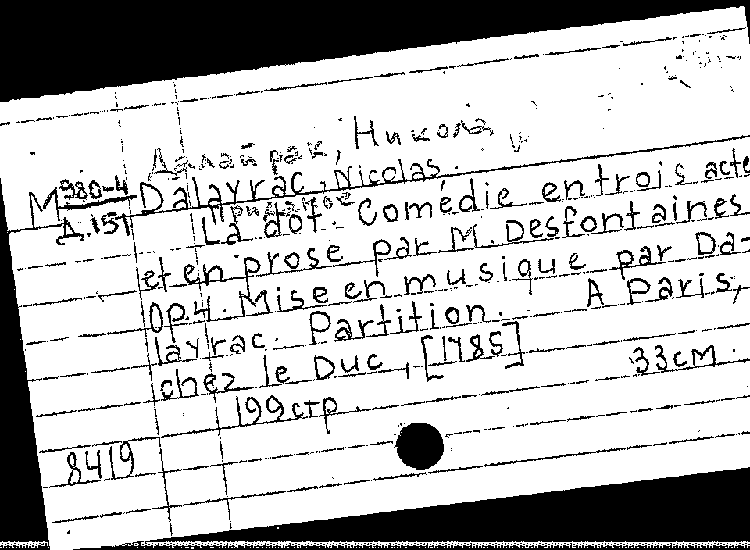 Далайрак, Никола
М 980-4 Dalayrac, Nicolas.
Д.151 Приданое
La dot. Comédie en trois acte
et en prose par M. Desfontaines
Op4. Mise en musique par Da-
layrac. Partition. A Paris,
chez le Duc, [1785]
199 стр. 33 см.
8419